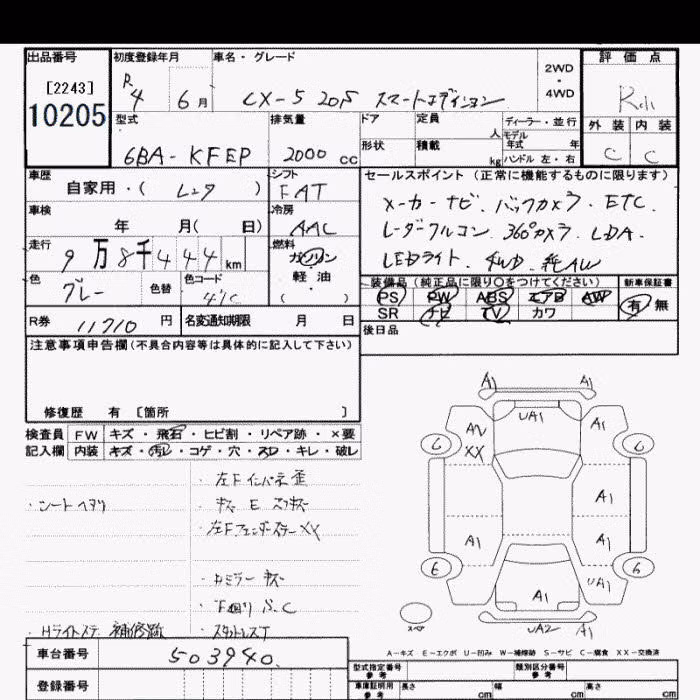 出品番号
[2243]
10205
初度登録年月
R 4 6 月
車名・グレード
CX-5 20S スマートエディション
2WD
・
4WD
評価点
外装 内装
C C
型式
6BA-KFEP
排気量
2000 cc
ドア
形状
定員
人
積載
kg
ディーラー・並行
モデル
年式 年
ハンドル 左・右
車歴
自家用・( レンタ )
シフト
FAT
車検
年 月( 日)
冷房
AAC
走行
9万8千444 km
燃料
ガソリン
軽・油
( )
色
グレー
色替
色コード
47C
R券 11710 円
名変通知期限 月 日
セールスポイント (正常に機能するものに限ります)
メーカーナビ.バックカメラ.ETC.
レーダークルコン.360°カメラ.LDA.
LEDライト.4WD.純AW
装備品(純正品に限り〇をつけてください)
PS PW ABS エアB AW
SR ナビ TV カワ
新車保証書
有 無
後日品
注意事項申告欄(不具合内容等は具体的に記入して下さい)
修復歴 有 [箇所 ]
検査員 FW キズ・飛石・ヒビ割・リペア跡・×要
記入欄 内装 キズ・汚レ・コゲ・穴・スレ・キレ・破レ
・左Fインパネ歪
・シートヘタリ
・左Fフェンダーステー XX
・Rミラー キズ
・下廻り S.C
・Hライトステー補修跡
・スタットレスT
A1 A1
UA1
A2
XX
A1
C C
A1
A1 A1
6 6
A1 UA1
UA2 A1
A-キズ E-エクボ U-凹み W-補修跡 S-サビ C-腐食 XX-交換済
車台番号 503940.
登録番号
型式指定番号
参考
類別区分番号
参考
車庫証明用
参考
長さ cm 幅 cm 高さ cm